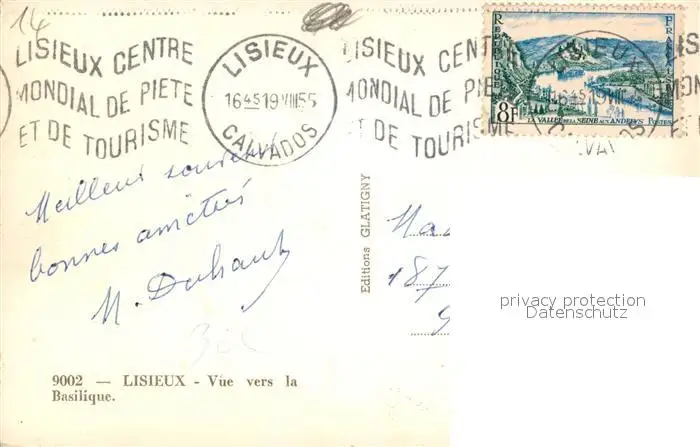 14
LISIEUX CENTRE
MONDIAL DE PIETE
ET DE TOURISME
LISIEUX
16 45 19 VIII 55
CALVADOS
LISIEUX CENT
MONDIAL DE PIE
ET DE TOURISM
REPUBLIQUE FRANÇAISE
8F
LA VALLÉE DE LA SEINE AUX ANDELYS POSTES
Meilleur souvenir
bonnes amitiés
Editions GLATIGNY
Ma
187
privacy protection
Datenschutz
9002 — LISIEUX - Vue vers la
Basilique.